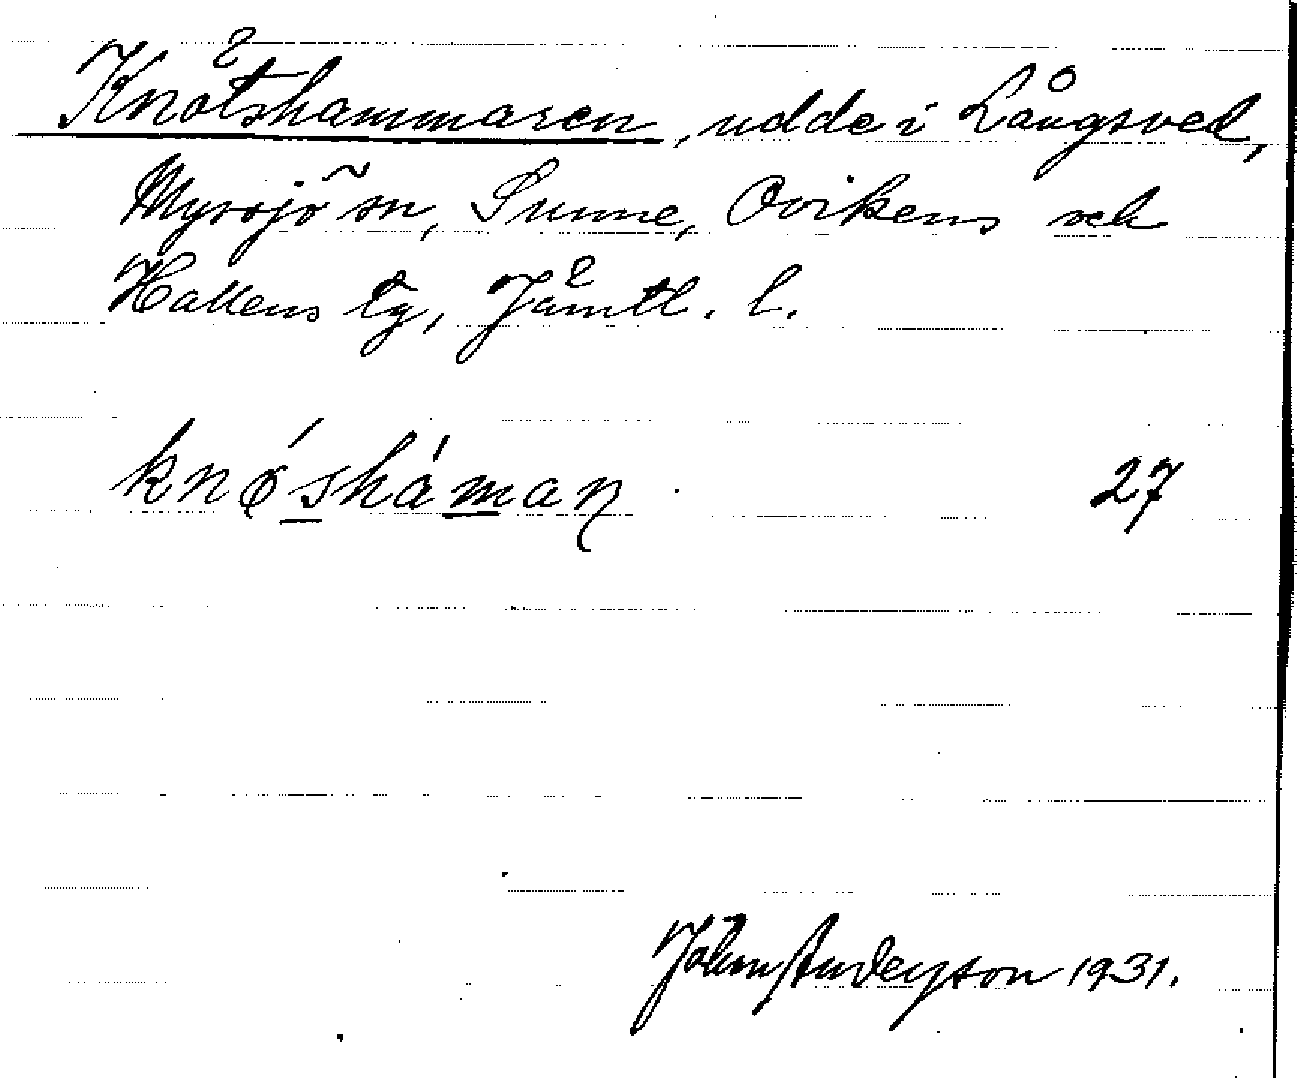 Knätshammaren, udde i Långsved,
Myssjö sn, Sunne, Ovikens och
Hallens tg, Jämtl. l.
27
John Andersson 1931.